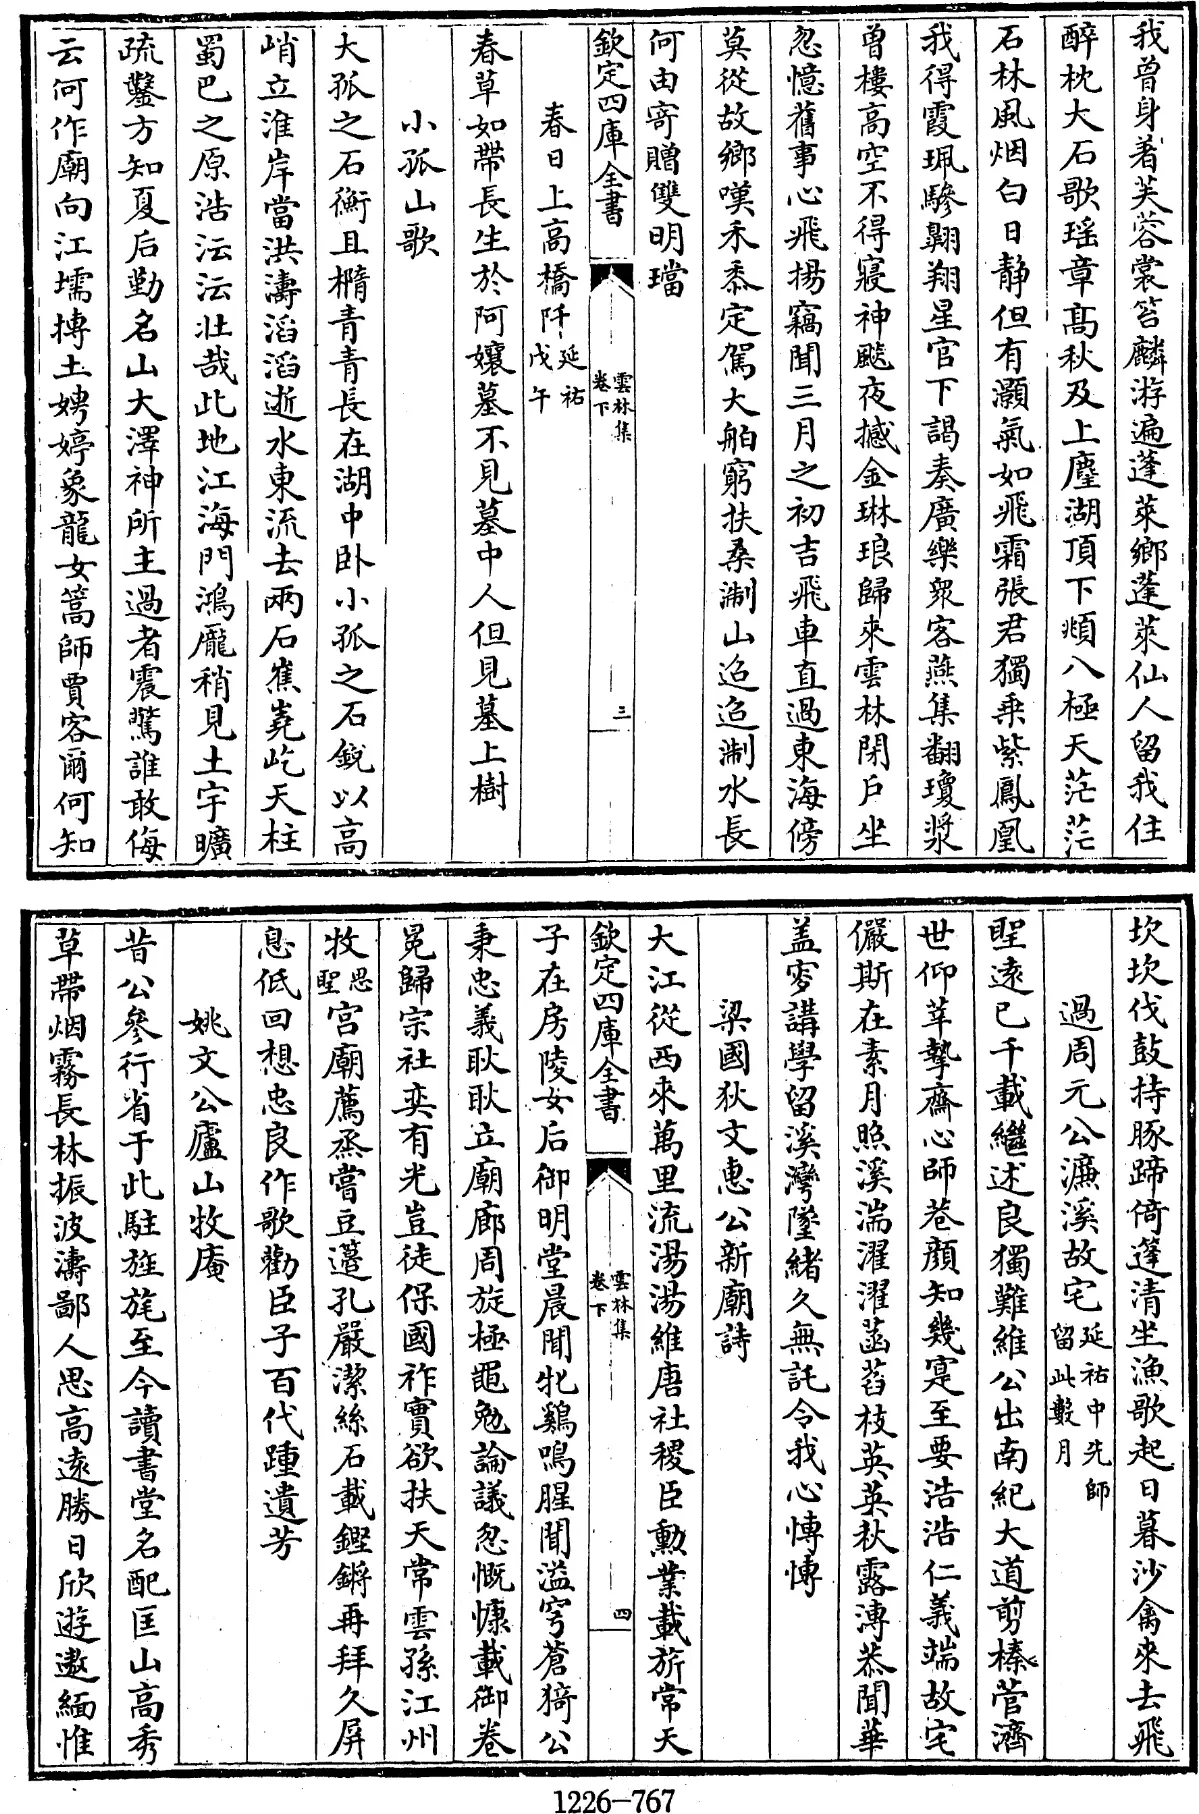 我曽身着芙蓉裳笞麟游遍蓬萊鄉蓬萊仙人留我住
醉枕大石歌瑶章髙秋及上麈湖頂下頫八極天茫茫
石林風烟白日静但有灝氣如飛霜張君獨乗紫鳳凰
我得霞珮驂翺翔星官下謁奏廣樂衆客燕集翻瓊漿
曽樓高空不得寢神飈夜撼金琳琅歸來雲林閉戶坐
忽憶舊事心飛揚竊聞三月之初吉飛車直過東海傍
莫從故鄉嘆禾黍定駕大舶窮扶桑淛山迢迢淛水長
何由寄贈雙明璫
欽定四庫全書
雲林集
卷下
三
春日上高橋阡延祐戊午
春草如帶長生於阿孃墓不見墓中人但見墓上樹
小孤山歌
大孤之石衡且橢青青長在湖中卧小孤之石銳以高
峭立淮岸當洪濤滔滔逝水東流去兩石嶣嶤屹天柱
蜀巴之原浩沄沄壯哉此地江海門鴻龎稍見土宇曠
疏鑿方知夏后勤名山大澤神所主過者震驚誰敢侮
云何作廟向江壖摶土娉婷象龍女篙師賈客爾何知
坎坎伐鼓持豚蹄倚蓬清坐漁歌起日暮沙禽來去飛
過周元公濓溪故宅延祐中先師留此數月
聖逺已千載繼述良獨難維公出南紀大道剪榛菅濟
世仰莘摯齋心師巷顔知幾寔至要浩浩仁義端故宅
儼斯在素月照溪湍濯濯菡萏枝英英秋露漙恭聞華
盖穸講學留溪灣墜緒久無託令我心慱慱
梁國狄文惠公新廟詩
大江從西來萬里流湯湯維唐社稷臣勲業載旂常天
欽定四庫全書
雲林集
卷下
四
子在房陵女后御明堂晨聞牝鷄鳴腥聞溢穹蒼猗公
秉忠義耿耿立廟廊周旋極黽勉論議忽慨慷載御卷
冕歸宗社奕有光豈徒保國祚實欲扶天常雲孫江州
牧思聖宫廟薦烝嘗豆籩孔嚴潔絲石載鏗鏘再拜久屏
息低回想忠良作歌勸臣子百代踵遺芳
姚文公廬山牧庵
昔公參行省于此駐旌旄至今讀書堂名配匡山高秀
草帶烟霧長林振波濤鄙人思高逺勝日欣遊遨緬惟
1226-767